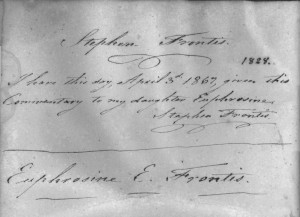 Stephen Frontis.
1828.
I have this day, April 3d 1867, given this
Commentary to my daughter Euphrosine.
Stephen Frontis.
Euphrosine E. Frontis.